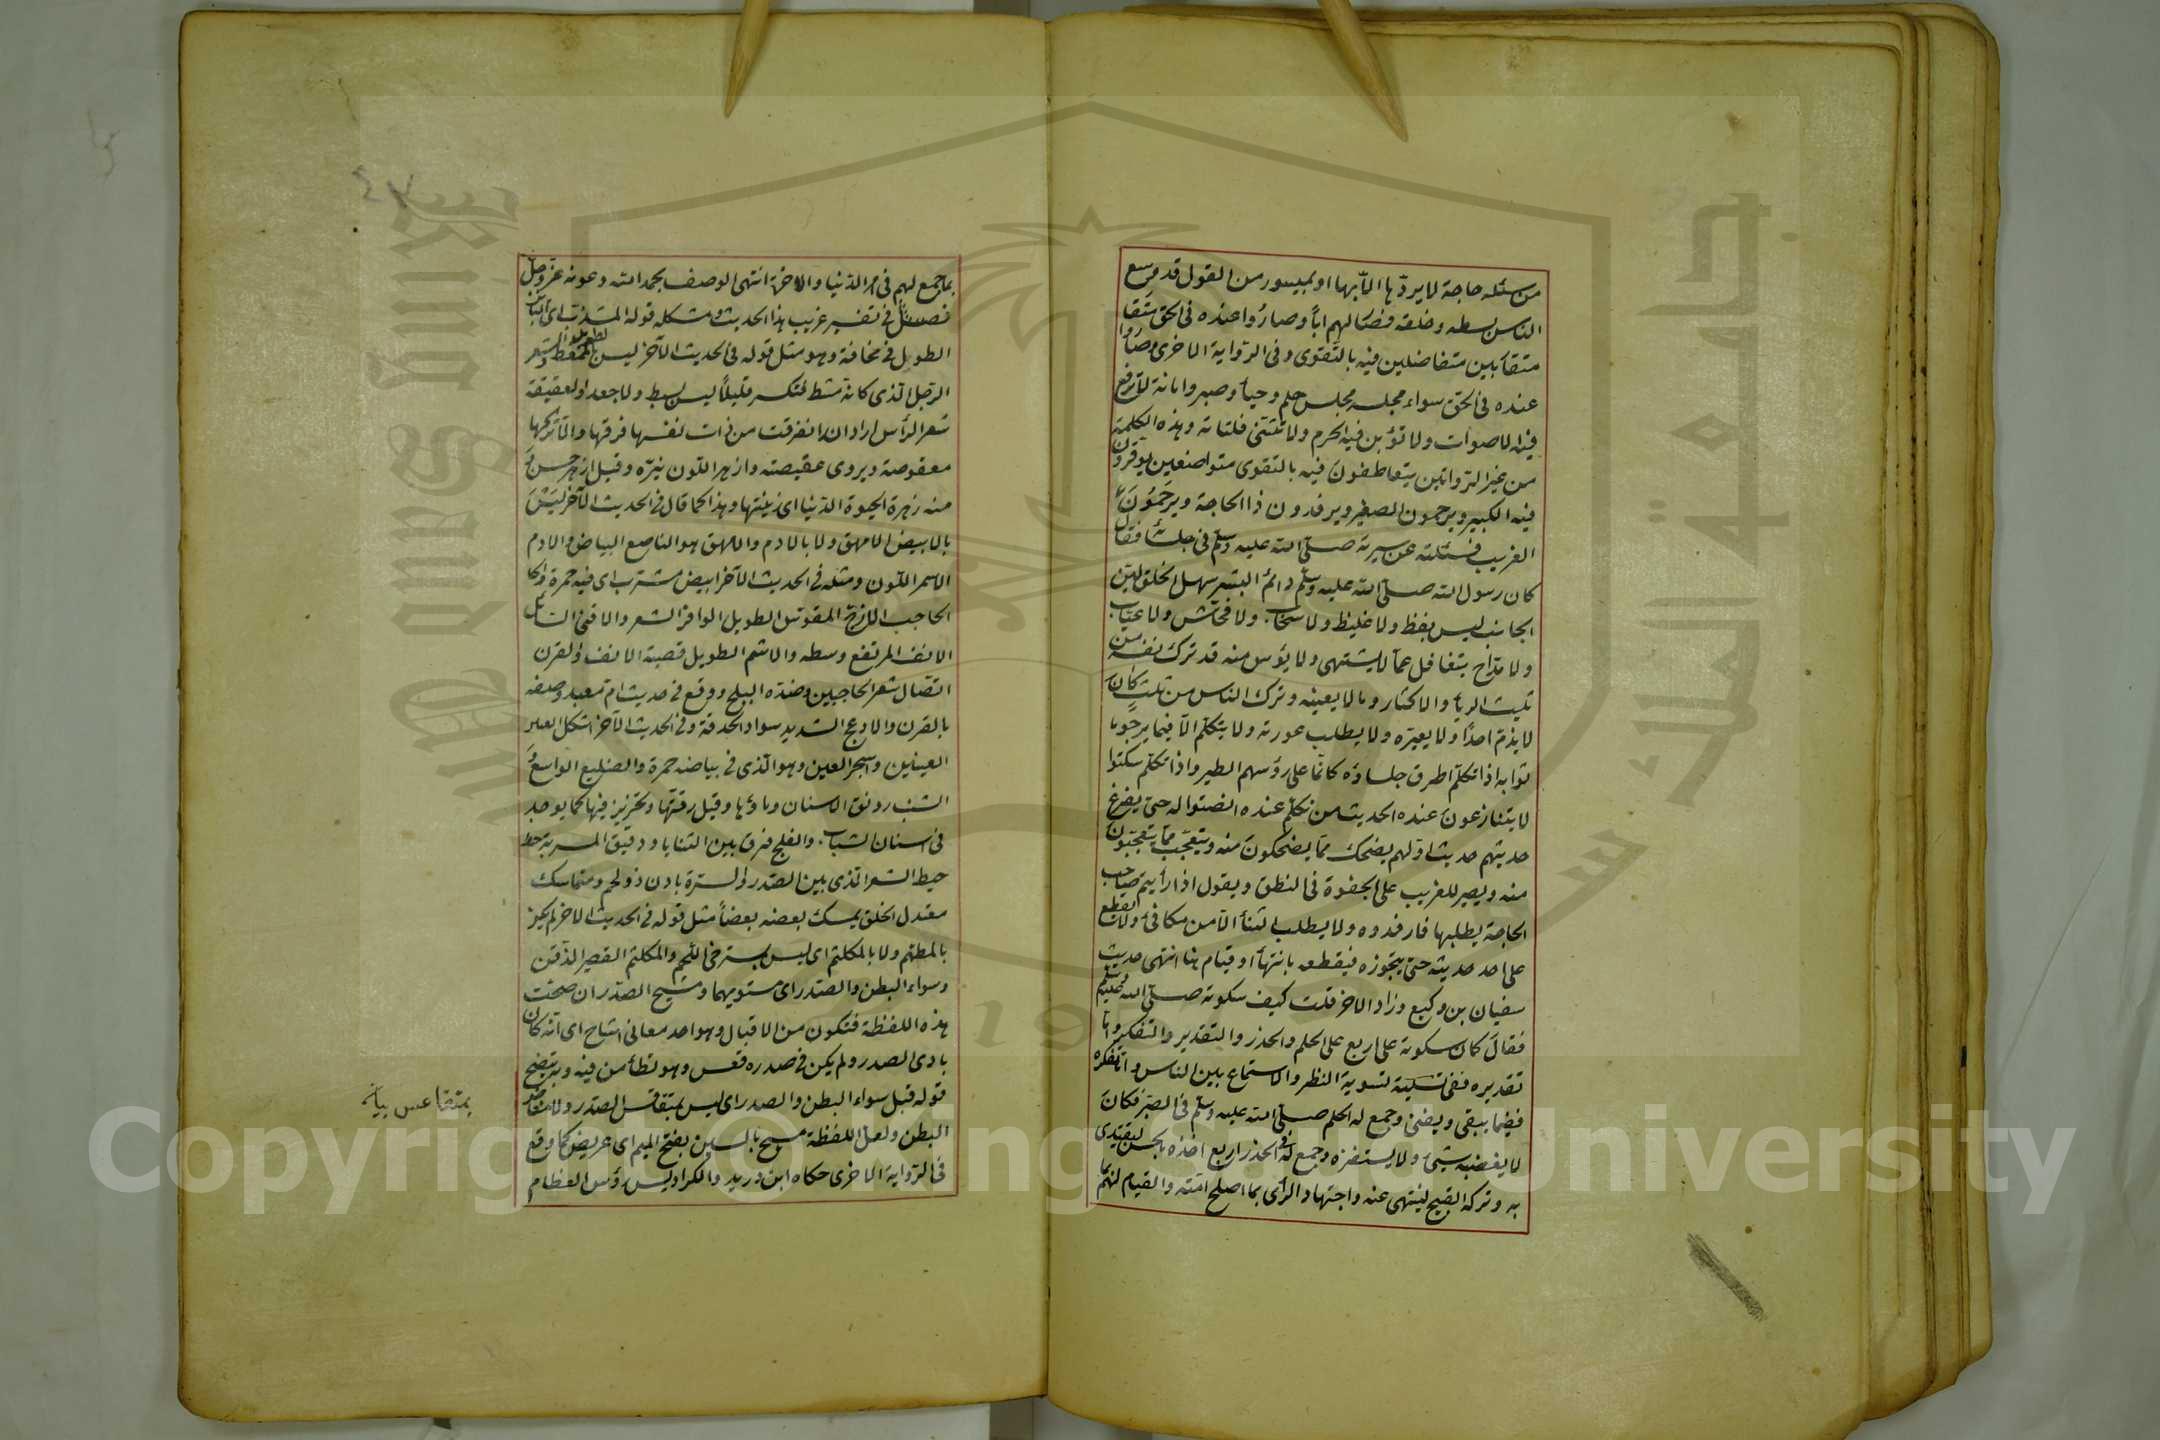 من سئله حاجة لا يردّها الّا بها او بميسور من القول قد وسع
الناس بسطه وخلقه فصار لهم اباً وصارُوا عنده فى الحق متقا
متقاربين متفاضلين فيه بالتّقوى وفى الرّواية الاخرى وصارُوا
عنده فى الحق سواء مجلسه مجلس حلم وحيأ وصبر وامانة لا ترفع
فيه الاصوات ولا تؤبن فيه الحرم ولا تنثنى فلتاته وهذه الكلمة
من غير الروايتين يتعاطفون فيه بالتقوى متواضعين يوقرون
فيه الكبير ويرحمون الصغير ويرفدون ذا الحاجة ويرحمُونَ
الغريب فسئلته عن سيرته صلّى الله عليه وسلّم فى جلسائه فقال
كان رسول الله صلّى الله عليه وسلّم دائم البشر سهل الخلق ليّن
الجانب ليس بفظ ولا غليظ ولا سخّاب ولا فحّاش ولا عيّاب
ولا مدّاح يتغافل عمّا لا يشتهى ولا يؤس منه قد ترك نفسه من
ثلث الريأ والاكثار وما لا يعينه وترك الناس من ثلث كان
لا يذمّ احداً ولا يعيّره ولا يطلب عورته ولا يتكلّم الّا فيما يرجو
ثوابه اذا تكلّم اطرق جلساؤه كانّما على رؤسهم الطير واذا تكلّم سكتوا
لا يتنازعون عنده الحديث من تكلّم عنده انصتوا له حتى يفرغ
حديثهم حديث اوّلهم يضحك ممّا يضحكون منه ويتعجّب ممّا يتعجّبون
منه ويصبر للغريب على الجفوة فى النطق ويقول اذا رأيتم صاحب
الحاجة يطلبها فارفدوه ولا يطلب الثنأ الّا من مكافئ ولا يقطع
على احد حديثه حتى يتجوزه فيقطعه بانتهأ او قيام هنا انتهى حديث
سفيان بن وكيع وزاد الاخر قلت كيف سكوته صلّى الله عليه وسلّم
فقال كان سكوته على اربع على الحلم والحذر والتقدير والتفكر وامّا
تقديره ففى تسوية النظر والاستماع بين الناس وامّا تفكره
ففيما يبقى ويفنى وجمع له الحلم صلّى الله عليه وسلّم فى الصبر فكان
لا يغضبه شىء ولا يستفزه وجمع له فى الحذر اربع اخذه بالحسن ليقتدى
به وتركه القبيح لينتهى عنه واجتهاد الرأى بما اصلح امّته والقيام لهم
بما جمع لهم فى امر الدّنيا والاخرة انتهى الوصف بحمد الله وعونه عزّ وجلّ
فصل فى تفسير غريب هذا الحديث ومشكله قوله المشذب اى البائن
الطويل فى نحافة وهو مثل قوله فى الحديث الآخر ليس بالطويل الممغط والشعر
الرجل الذى كانه مشط فتكسر قليلاً ليس بسبط ولا جعد والعقيقة
شعر الرأس اراد ان انفرقت من ذات نفسها فرقها والّا تركها
معقوصة ويروى عقيصته وازهر اللون نيّره وقيل ازهر حسن و
منه زهرة الحيوة الدّنيا اى زينتها وهذا كما قال فى الحديث الآخر ليسَ
بالابيض الامهق ولا بالادم والامهق هو الناصع البياض والادم
الاسمر اللّون ومثله فى الحديث الآخر ابيض مشرب اى فيه حمرة
الحاجب الازجّ المقوّس الطويل الوافر الشعر والاقنى السائل
الانف المرتفع وسطه والاشم الطويل قصبة الانف والقرن
اتصال شعر الحاجبين وضدّه البلج ووقع فى حديث ام معبد وصفه
بالقرن والادعج الشديد سواد الحدقة وفى الحديث الآخر اشكل العين
العينين واسجر العين وهو الّذى فى بياضه حمرة والضليع الواسع و
الشنب رونق الاسنان وماؤها وقيل رقّتها وتحزيز فيها كما يوجد
فى اسنان الشباب والفلج فرق بين الثنايا ودقيق المسربة خط
خيط الشعر الّذى بين الصّدر والسرّة بادن ذو لحم ومتماسك
معتدل الخلق يمسك بعضه بعضاً مثل قوله فى الحديث الاخر لم يكن
بالمطهّم ولا بالمكلثم اى ليس بمسترخى اللّحم والمكلثم القصير الذّقن
وسواء البطن والصّدر اى مستويهما ومشيح الصّدر ان صحّت
هذه اللفظة فتكون من الاقبال وهو احد معانى اشاح اى انّه كان
بادى الصدر ولم يكن فى صدره قعس وهو تطأمن فيه وبه يتضح
قوله قبل سواء البطن والصدر اى ليس بمتقاعس الصّدر ولا مفاض
البطن ولعلّ اللفظة مسيح بالسين بفتح الميم اى عريض كما وقع
فى الرّواية الاخرى حكاه ابن دريد والكراديس رؤس العظام
بمتقاعس
Copyright © King Saud University